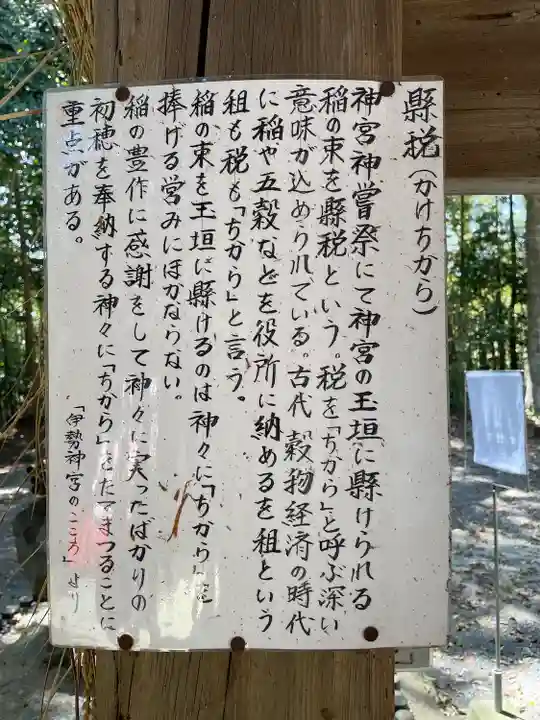 縣税(かけちから)
神宮神嘗祭にて神宮の玉垣に縣けられる
稲の束を縣税という。税を「ちから」と呼ぶ深い
意味が込められている。古代穀物経済の時代
に稲や五穀などを役所に納めるを租という
租も税も「ちから」と言う。
稲の束を玉垣に縣けるのは神々に「ちから」を
捧げる営みにほかならない。
稲の豊作に感謝をして神々に実ったばかりの
初穂を奉納する神々に「ちから」をたてまつることに
重点がある。
「伊勢神宮のこころ」より